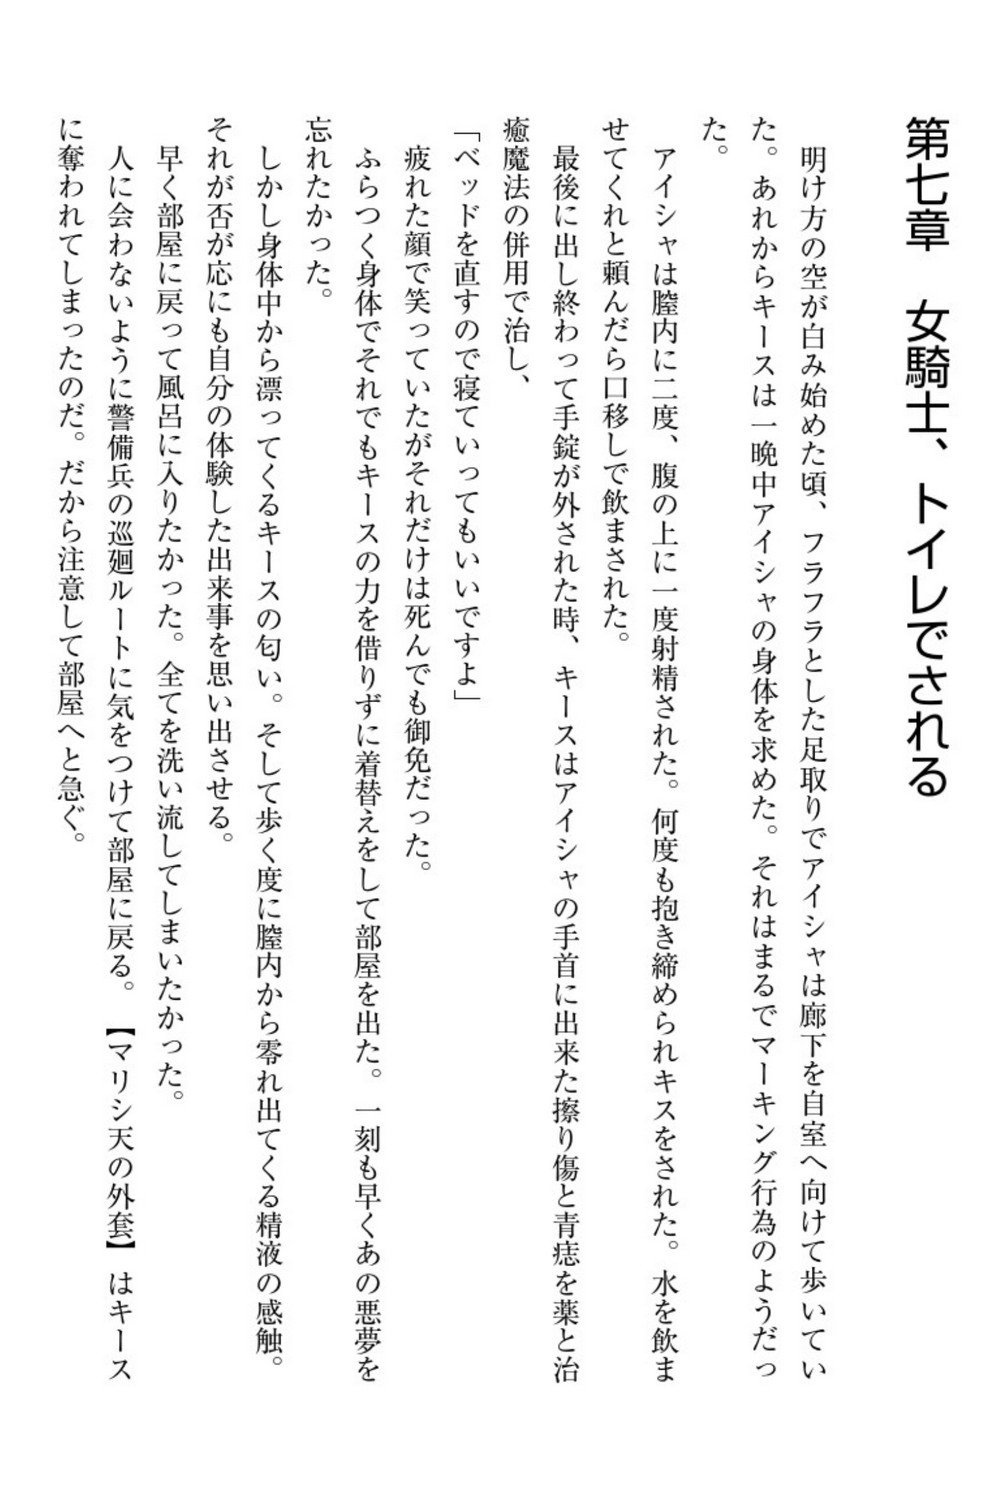 第七章　女騎士、トイレでされる
　明け方の空が白み始めた頃、フラフラとした足取りでアイシャは廊下を自室へ向けて歩いてい
た。あれからキースは一晩中アイシャの身体を求めた。それはまるでマーキング行為のようだっ
た。
　アイシャは膣内に二度、腹の上に一度射精された。何度も抱き締められキスをされた。水を飲ま
せてくれと頼んだら口移しで飲まされた。
　最後に出し終わって手錠が外された時、キースはアイシャの手首に出来た擦り傷と青痣を薬と治
癒魔法の併用で治し、
「ベッドを直すので寝ていってもいいですよ」
　疲れた顔で笑っていたがそれだけは死んでも御免だった。
　ふらつく身体でそれでもキースの力を借りずに着替えをして部屋を出た。一刻も早くあの悪夢を
忘れたかった。
　しかし身体中から漂ってくるキースの匂い。そして歩く度に膣内から零れ出てくる精液の感触。
それが否が応にも自分の体験した出来事を思い出させる。
　早く部屋に戻って風呂に入りたかった。全てを洗い流してしまいたかった。
　人に会わないように警備兵の巡廻ルートに気をつけて部屋に戻る。【マリシ天の外套】はキース
に奪われてしまったのだ。だから注意して部屋へと急ぐ。